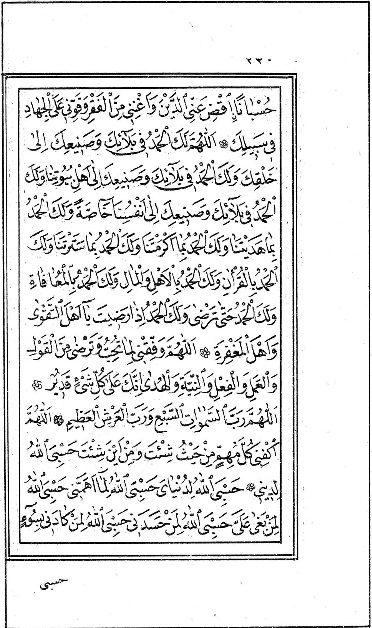 ٢٣٠
حُسْبَانًا اِقْضِ عَنِّي الدَّيْنَ وَاَغْنِنِي مِنَ الْفَقْرِ وَقَوِّنِي عَلَى الْجِهَادِ
فِي سَبِيلِكَ ۞ اَللّٰهُمَّ لَكَ الْحَمْدُ فِي بَلَائِكَ وَصَنِيعِكَ اِلَى
خَلْقِكَ وَلَكَ الْحَمْدُ فِي بَلَائِكَ وَصَنِيعِكَ اِلَى اَهْلِ بُيُوتِنَا وَلَكَ
الْحَمْدُ فِي بَلَائِكَ وَصَنِيعِكَ اِلَى اَنْفُسِنَا خَاصَّةً وَلَكَ الْحَمْدُ
بِمَا هَدَيْتَنَا وَلَكَ الْحَمْدُ بِمَا اَكْرَمْتَنَا وَلَكَ الْحَمْدُ بِمَا سَتَرْتَنَا وَلَكَ
الْحَمْدُ بِالْقُرْاٰنِ وَلَكَ الْحَمْدُ بِالْاَهْلِ وَالْمَالِ وَلَكَ الْحَمْدُ بِالْمُعَافَاةِ
وَلَكَ الْحَمْدُ حَتّٰى تَرْضٰى وَلَكَ الْحَمْدُ اِذَا رَضِيتَ يَا اَهْلَ التَّقْوٰى
وَاَهْلَ الْمَغْفِرَةِ ۞ اَللّٰهُمَّ وَفِّقْنِي لِمَا تُحِبُّ وَتَرْضٰى مِنَ الْقَوْلِ
وَالْعَمَلِ وَالْفِعْلِ وَالنِّيَّةِ وَالْهُدٰى اِنَّكَ عَلٰى كُلِّ شَيْءٍ قَدِيرٌ ۞
اَللّٰهُمَّ رَبَّ السَّمٰوَاتِ السَّبْعِ وَرَبَّ الْعَرْشِ الْعَظِيمِ ۞ اَللّٰهُمَّ
اكْفِنِي كُلَّ مُهِمٍّ مِنْ حَيْثُ شِئْتَ وَمِنْ اَيْنَ شِئْتَ حَسْبِيَ اللّٰهُ
لِدِينِي ۞ حَسْبِيَ اللّٰهُ لِدُنْيَايَ حَسْبِيَ اللّٰهُ لِمَا اَهَمَّنِي حَسْبِيَ اللّٰهُ
لِمَنْ بَغٰى عَلَيَّ حَسْبِيَ اللّٰهُ لِمَنْ حَسَدَنِي حَسْبِيَ اللّٰهُ لِمَنْ كَادَنِي بِسُوءٍ
حسبى